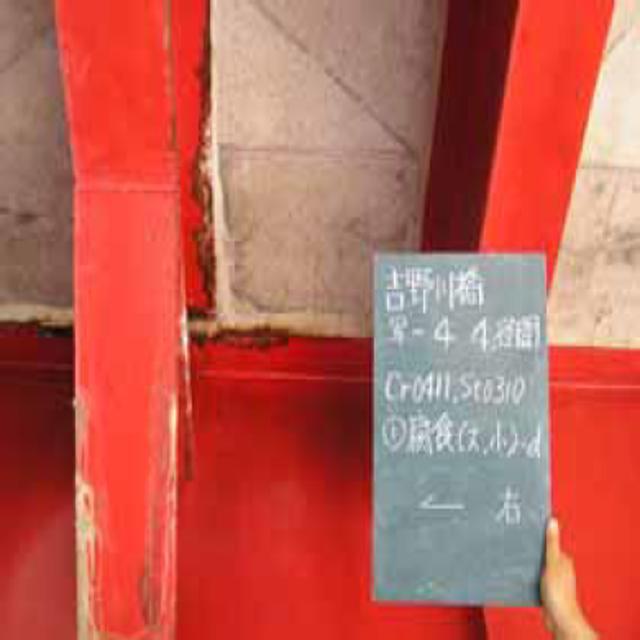 吉野川橋
写-4 4径間
Cr0411,St0310
①腐食(大,小)-d
← 右